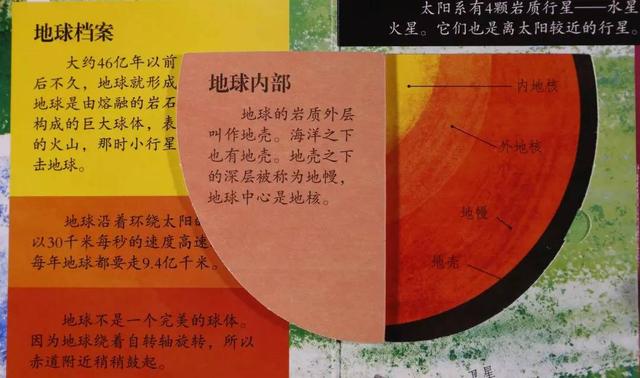 太阳系有4颗岩质行星——水星
火星。它们也是离太阳较近的行星。
地球档案
大约46亿年以前
后不久，地球就形成
地球是由熔融的岩石
构成的巨大球体，表
的火山，那时小行星
击地球。
地球沿着环绕太阳的
以30千米每秒的速度高速
每年地球都要走9.4亿千米。
地球不是一个完美的球体。
因为地球绕着自转轴旋转，所以
赤道附近稍稍鼓起。
地球内部
地球的岩质外层
叫作地壳。海洋之下
也有地壳。地壳之下
的深层被称为地慢，
地球中心是地核。
内地核
外地核
地慢
地壳